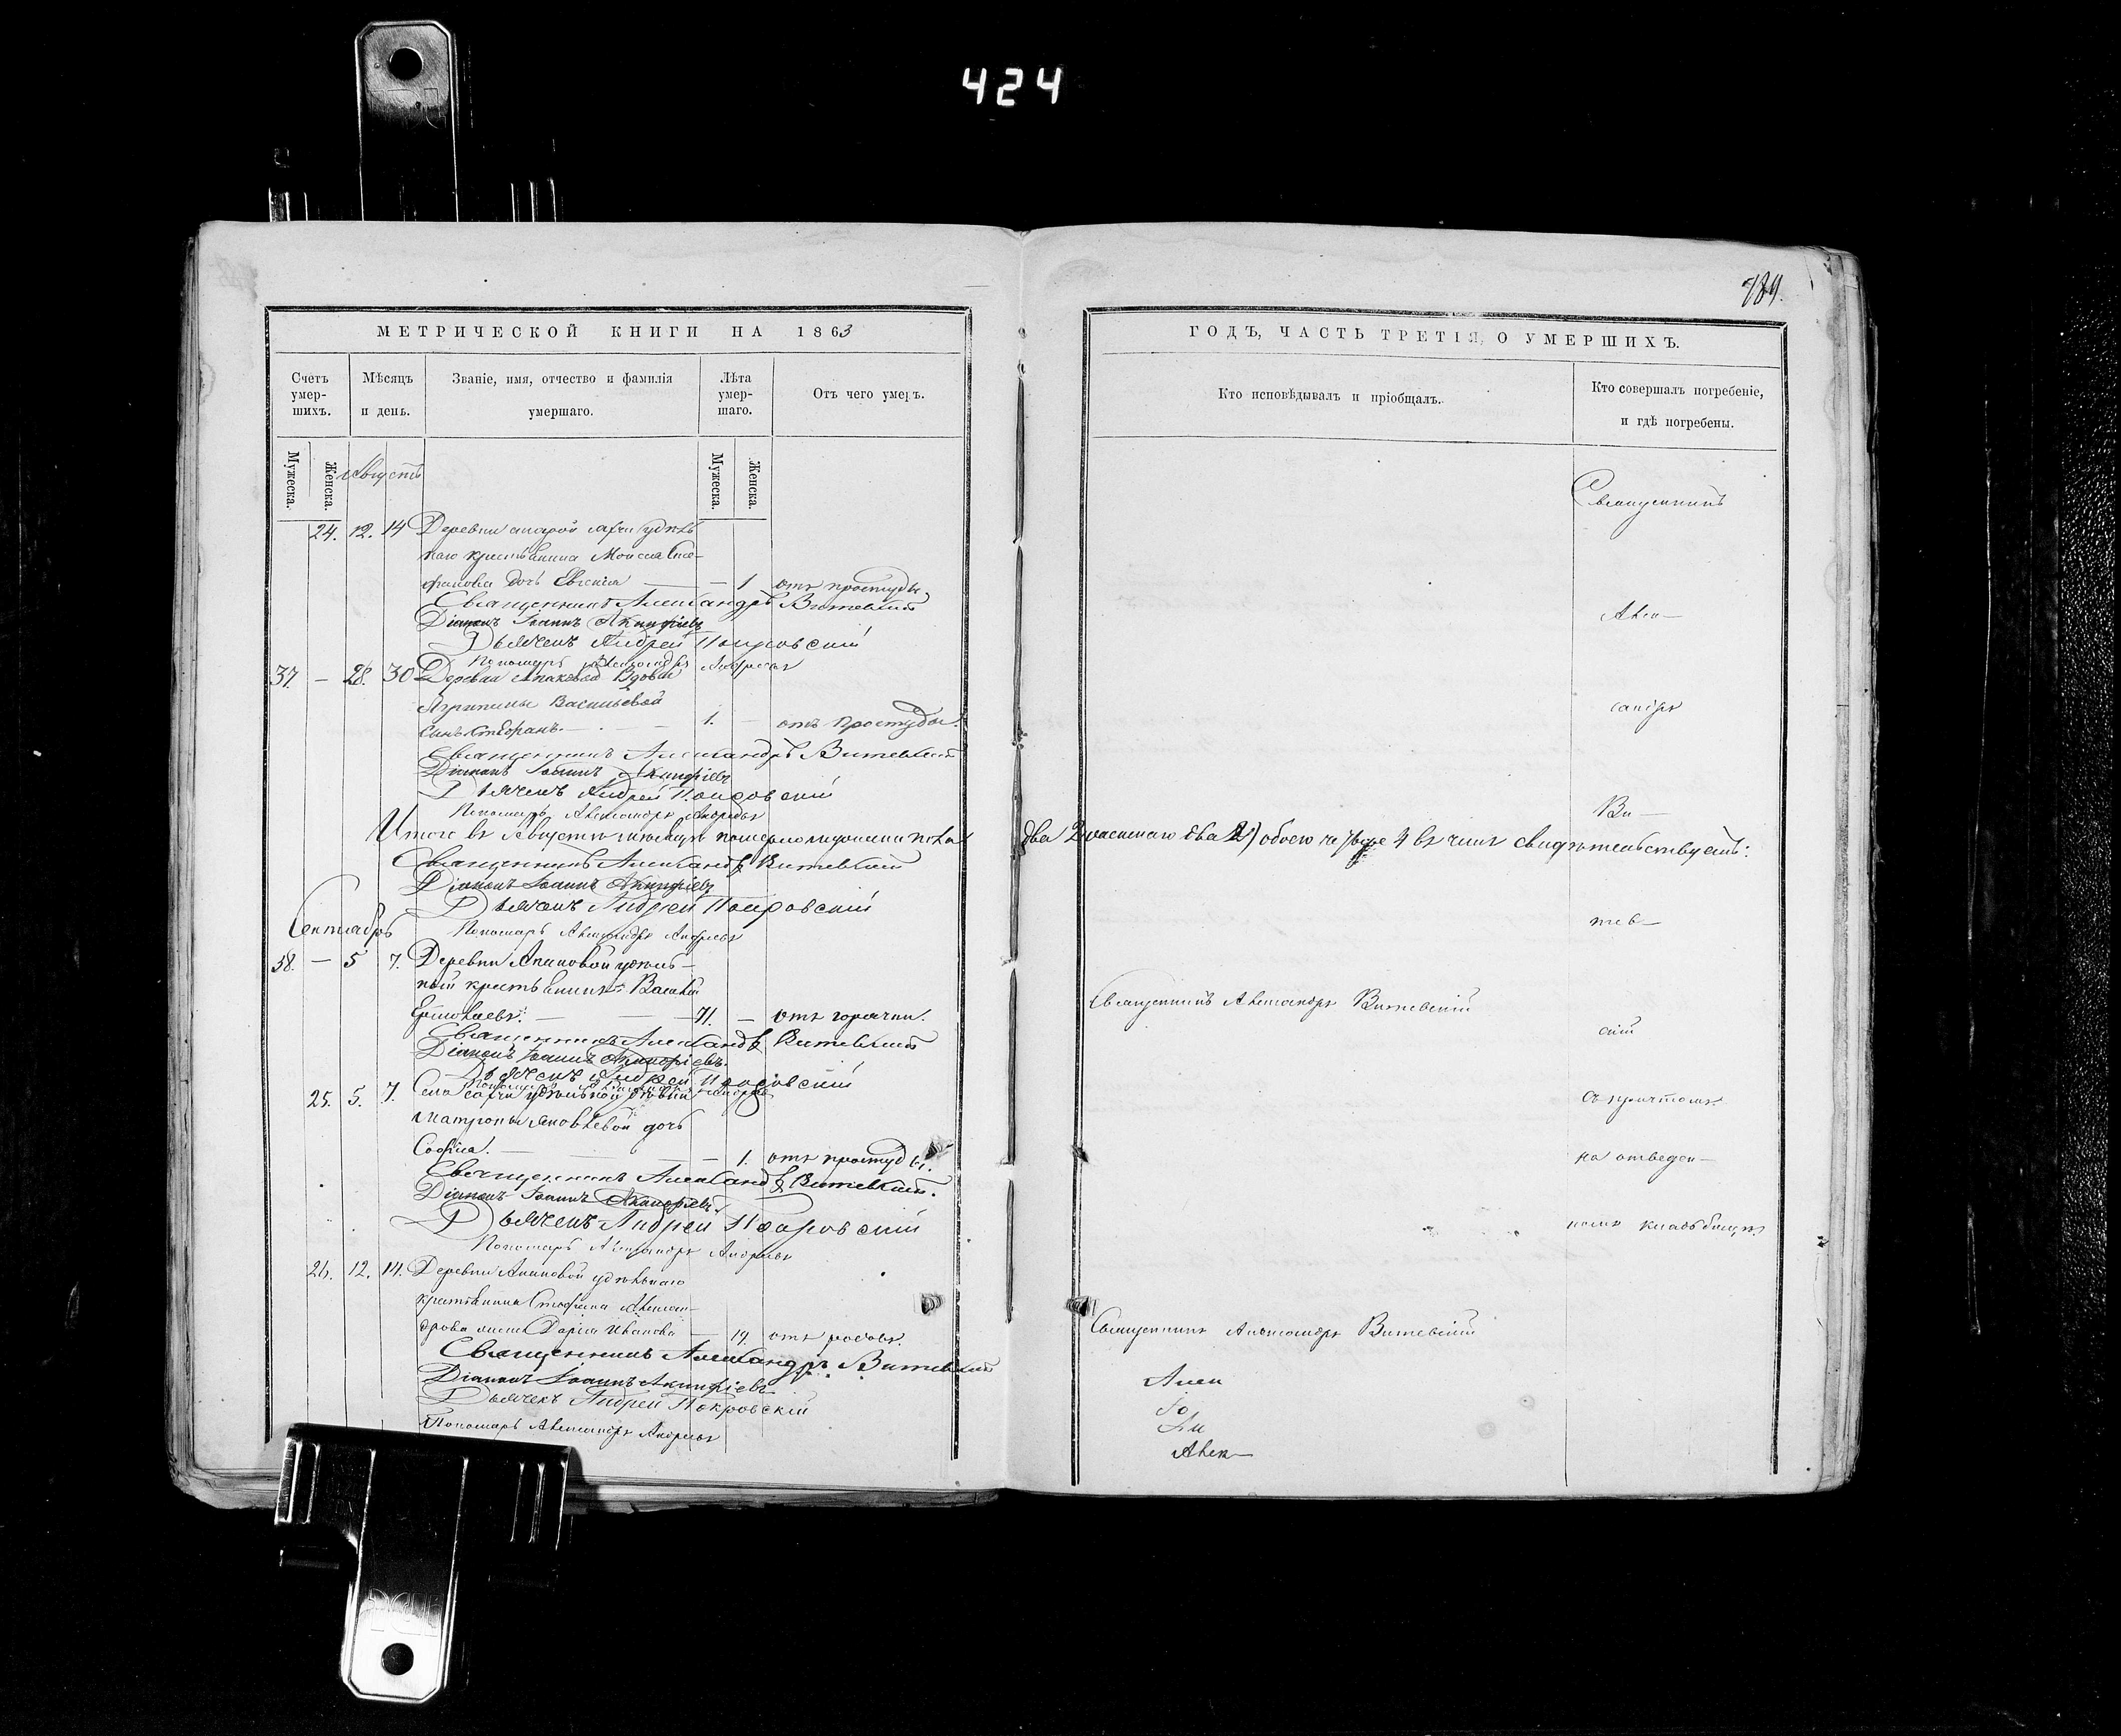 424
МЕТРИЧЕСКОЙ КНИГИ НА 1863
Счетъ умер- шихъ.
Мѣсяцъ и день.
Званіе, имя, отчество и фамилія умершаго.
Лѣта умер- шаго.
Отъ чего умеръ.
Мужеска.
Женска.
Мужеска.
Женска.
Августъ
24. 12. 14 Деревни старой
крестьянина Моисея
дочь Евгенія — — 1. отъ простуды.
Священникъ Александръ Витевскій
Діаконъ Іоаннъ Акинфіевъ
Дьячекъ Андрей Покровскій
Пономарь Александръ Андреевъ
37. — 28. 30 Деревни вдовы
Агрипины Васильевой
сынъ Стефанъ. — 1. — отъ простуды.
Священникъ Александръ Витевскій
Діаконъ Іоаннъ Акинфіевъ
Дьячекъ Андрей Покровскій
Пономарь Александръ Андреевъ
Итого въ Августѣ мѣсяцѣ померло мужеска пола
Священникъ Александръ Витевскій
Діаконъ Іоаннъ Акинфіевъ
Дьячекъ Андрей Покровскій
Сентябрь
Пономарь Александръ Андреевъ
38. — 5 7. Деревни Апаковой удѣль-
ный крестьянинъ Василій
— 71. — отъ горячки.
Священникъ Александръ Витевскій
Діаконъ Іоаннъ Акинфіевъ.
Дьячекъ Андрей Покровскій
Пономарь Александръ Андреевъ
25. 5. 7. Села удѣльной
Матроны Яковлевой дочь
Софія. — — 1. отъ простуды.
Священникъ Александръ Витевскій.
Діаконъ Іоаннъ Акинфіевъ
Дьячекъ Андрей Покровскій
Пономарь Александръ Андреевъ
26. 12. 14. Деревни Апаковой удѣльнаго
крестьянина Стефана Алексан-
дрова жена Дарія Иванова — 19 отъ родовъ.
Священникъ Александръ Витевскій
Діаконъ Іоаннъ Акинфіевъ
Дьячекъ Андрей Покровскій
Пономарь Александръ Андреевъ
ГОДЪ, ЧАСТЬ ТРЕТІЯ, О УМЕРШИХЪ.
Кто исповѣдывалъ и пріобщалъ.
Кто совершалъ погребеніе,
и гдѣ погребены.
Священникъ
Алек—
сандръ
Ви—
два 2 женскаго два 2) обоего четверо 4 въ чемъ свидѣтельствуетъ:
тев—
Священникъ Александръ Витевскій
скій
съ причтомъ.
на отведен—
номъ кладбищѣ.
Священникъ Александръ Витевскій
Алек
Іо
Ан
Алек—